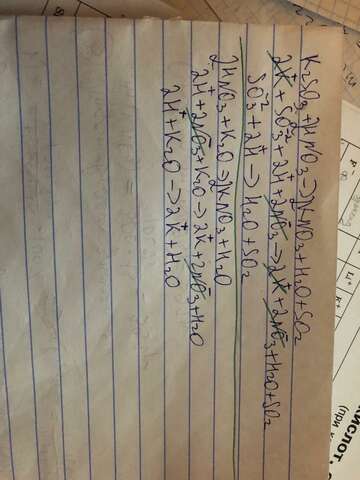 K₂SO₃+2HNO₃→2KNO₃+H₂O+SO₂
2K⁺+SO₃²⁻+2H⁺+2NO₃⁻→2K⁺+2NO₃⁻+H₂O+SO₂
SO₃²⁻+2H⁺→H₂O+SO₂
2HNO₃+K₂O→2KNO₃+H₂O
2H⁺+2NO₃⁻+K₂O→2K⁺+2NO₃⁻+H₂O
2H⁺+K₂O→2K⁺+H₂O
КИСЛОТ,
(при